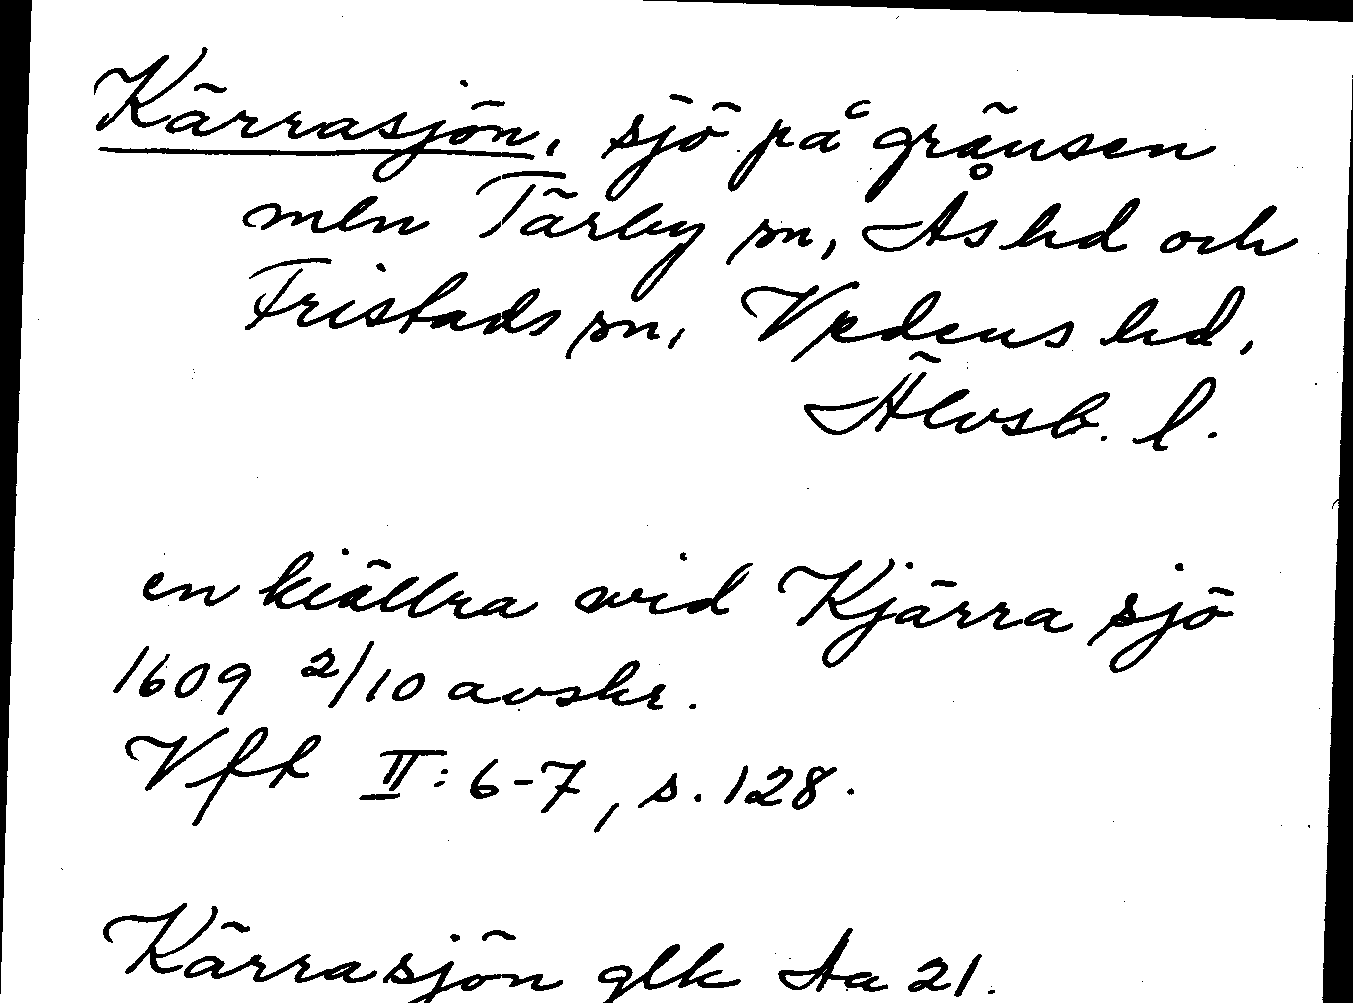 Kärrasjön, sjö på gränsen
mln Tärby sn, Ås hd och
Fristads sn, Vedens hd,
Älvsb. l.
en kiällra wid Kjärra sjö
1609 2/10 avskr.
Vfk II: 6-7, s. 128.
Kärrasjön glk Aa 21.